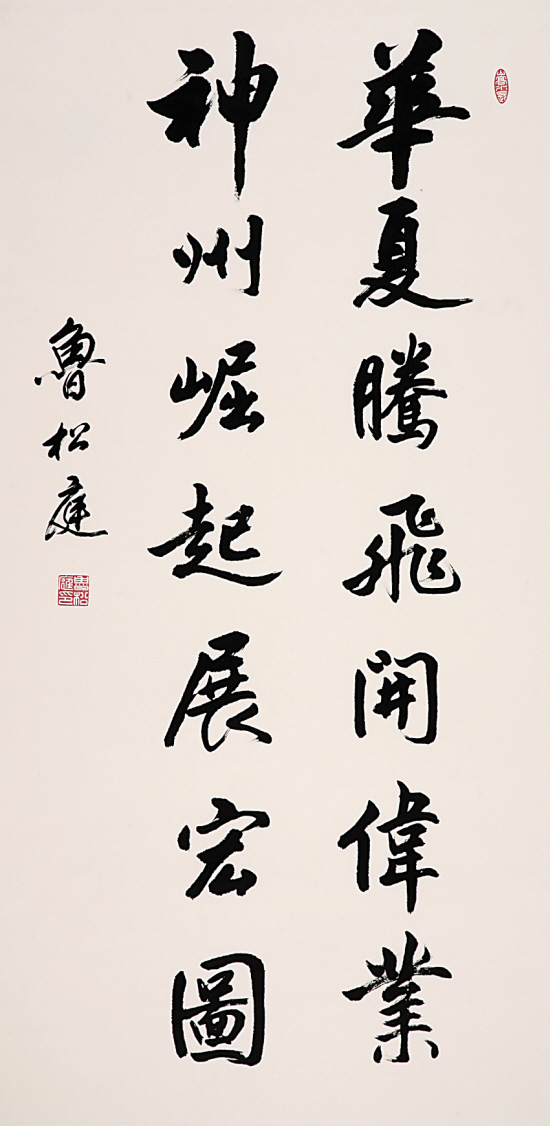 華夏騰飛開偉業
神州崛起展宏圖
魯松庭